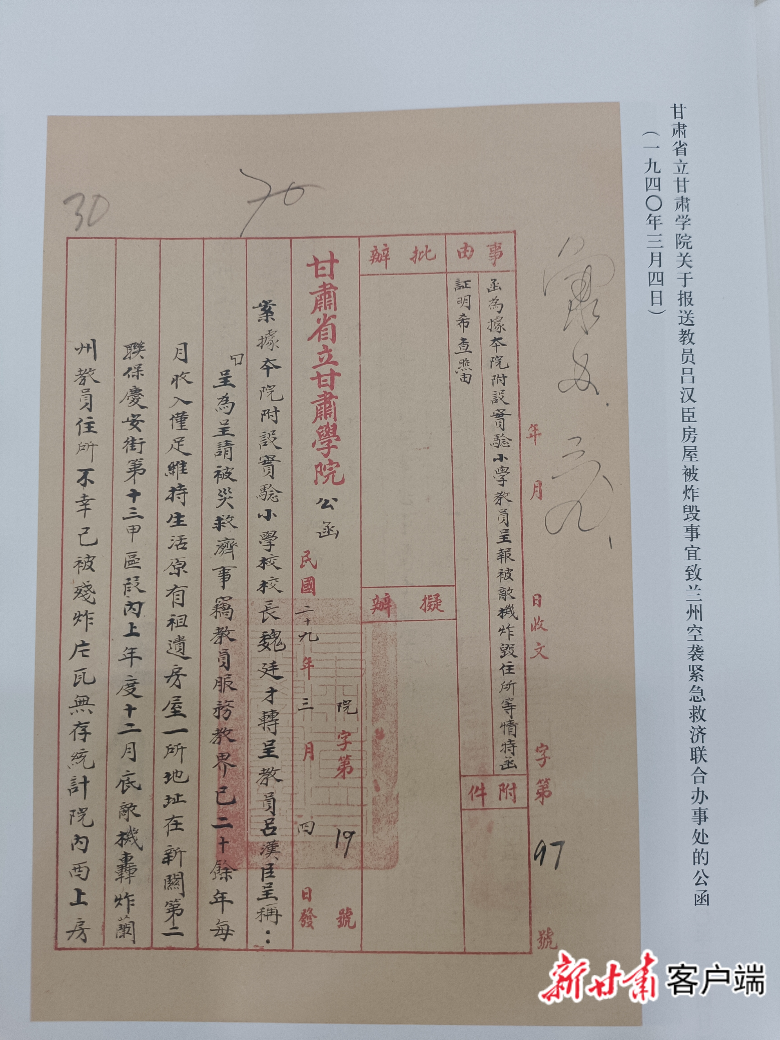 甘肃省立甘肃学院关于报送教员吕汉臣房屋被炸毁事宜致兰州空袭紧急救济联合办事处的公函
（一九四〇年三月四日）
年 月 日收文 字第 97 號
事由
函為據本院附設實驗小學教員呈報被敵機炸毀住所等情特函
証明希查照由
附件
批辦
擬辦
院字第 19 號
甘肅省立甘肅學院公函 民國二十九年三月四日發
案據本院附設實驗小學校校長魏廷才轉呈教員呂漢臣呈稱：
「呈為呈請被災救濟事竊教員服務教界已二十餘年每
月收入僅足維持生活原有祖遺房屋一所地址在新關第二
聯保慶安街第十三甲區段內上年度十二月底敵機轟炸蘭
州教員住所不幸已被殘炸片瓦無存統計院內西上房
70
30
新甘肃客户端